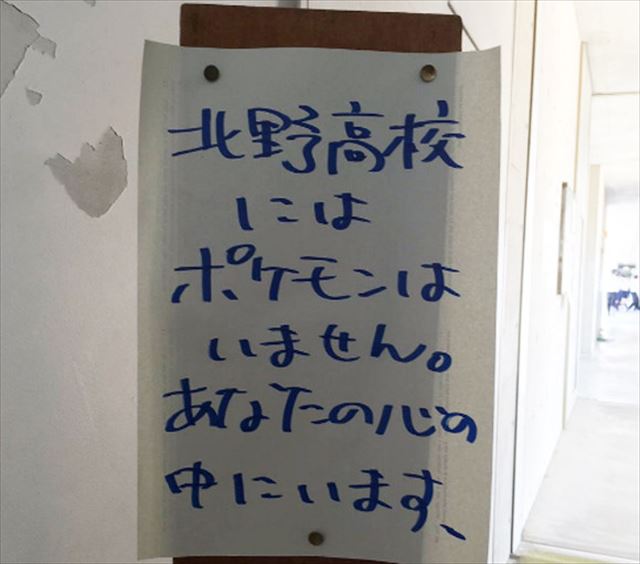 北野高校
には
ポケモンは
いません。
あなたの心の
中にいます、